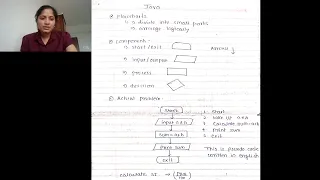 Java
flowcharts
→ divide into small parts
→ arrange logically
component:-
start/exit
input/output
process
decision
Actual problem
start
input a & b
sum=a+b
print sum
exit
1. start
2. take i/p a & b
3. calculate sum=a+b
4. print sum
5. exit
This is pseudo code
written in english
calculate SI →